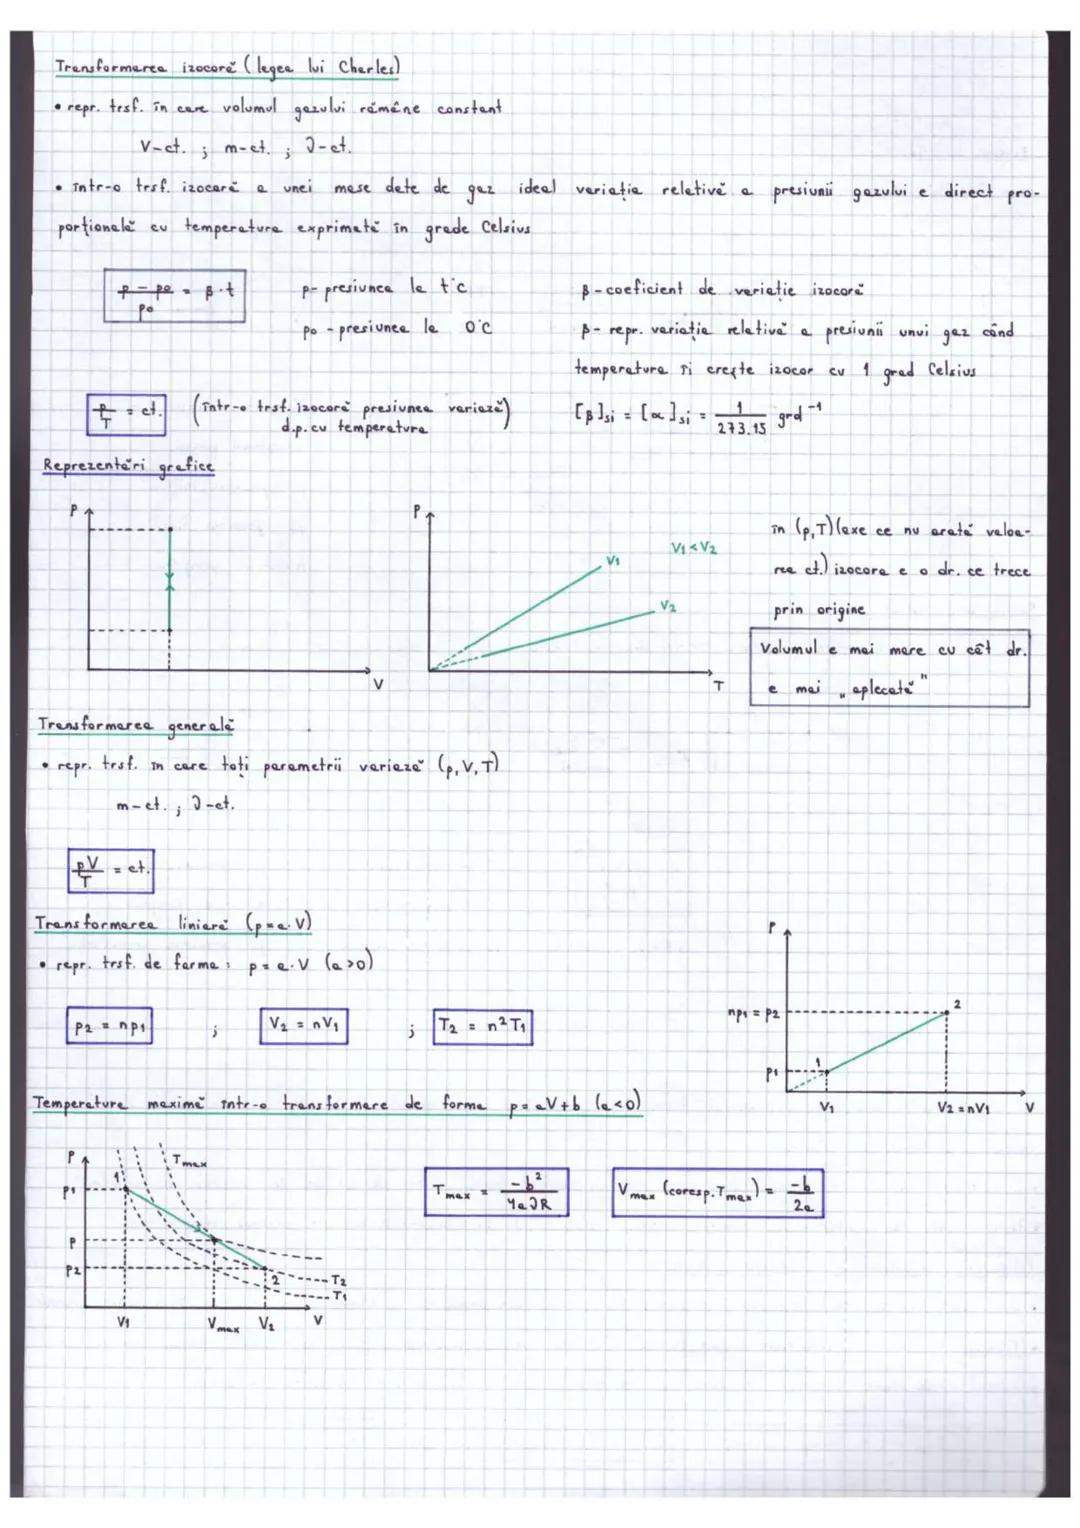 Transformarea izocoră (legea lui Charles)
• repr. trsf. în care volumul gazului rămâne constant
V-ct. ; m-ct. ; ν-ct.
• într-o trsf. izocară a unei mase date de gaz ideal variația relativă a presiunii gazului e direct pro-
porțională cu temperatura exprimată în grade Celsius
(p - p₀)/p₀ = β·t
p- presiunea la t°C
β-coeficient de variație izocoră
p₀ - presiunea la 0°C
β- repr. variația relativă a presiunii unui gaz când
temperatura îi crește izocor cu 1 grad Celsius
p/T = ct.
(într-o trsf. izocoră presiunea variază)
d.p. cu temperatura
[β]si = [α]si = 1/273.15 grd⁻¹
Reprezentări grafice
P
V
P
V₁
V₁ < V₂
V₂
T
în (p,T)(axe ce nu arată valoa-
rea ct.) izocora e o dr. ce trece
prin origine
Volumul e mai mare cu cât dr.
e mai „aplecată"
Transformarea generală
• repr. trsf. în care toți parametrii variază (p,V,T)
m-ct. ; ν-ct.
pV/T = ct.
Transformarea liniară (p=a·V)
• repr. trsf. de forma : p = a·V (a>0)
p₂ = np₁ ; V₂ = nV₁ ; T₂ = n²T₁
P
np₁ = p₂
2
p₁
1
V₁
V₂ = nV₁
V
Temperatura maximă într-o transformare de forma p = aV+b (a<0)
P
Tmax
1
p₁
p
p₂
2
T₂
T₁
V₁
Vmax
V₂
V
Tmax = -b²/4aνR
Vmax (coresp. Tmax) = -b/2a